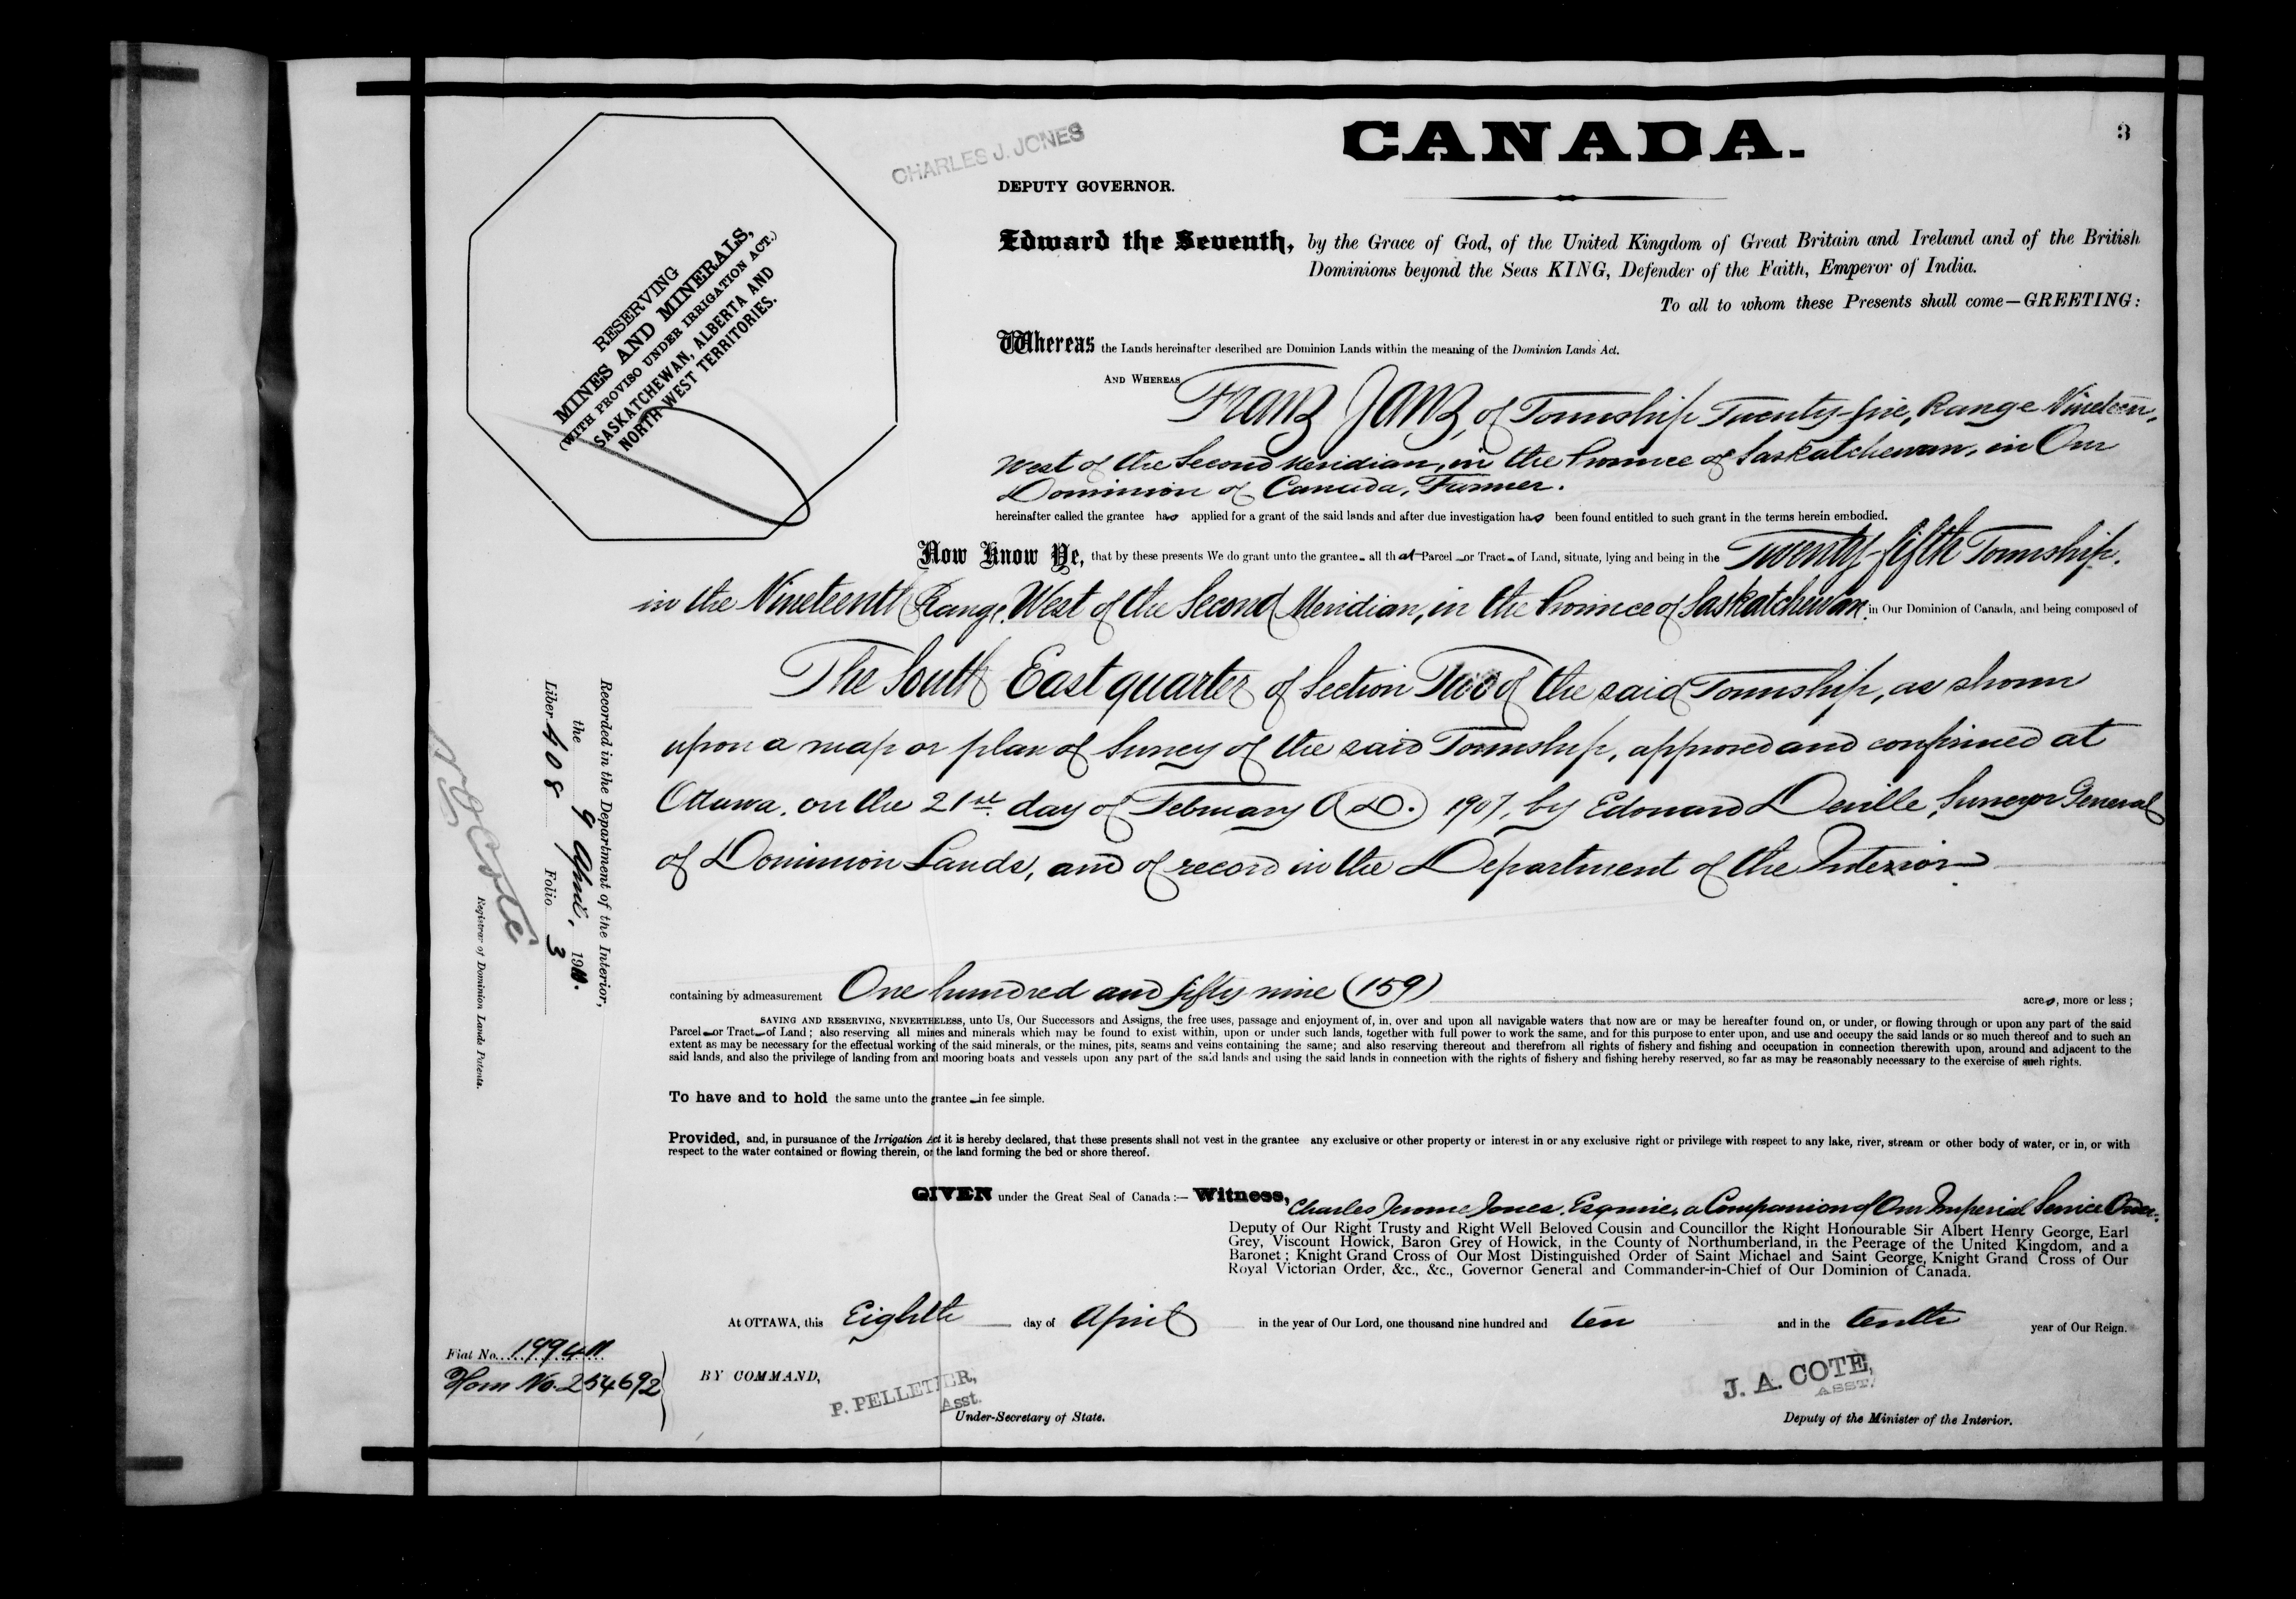 3
CANADA.
CHARLES J. JONES
DEPUTY GOVERNOR.
RESERVING
MINES AND MINERALS,
(WITH PROVISO UNDER IRRIGATION ACT.)
SASKATCHEWAN, ALBERTA AND
NORTH WEST TERRITORIES.
Edward the Seventh, by the Grace of God, of the United Kingdom of Great Britain and Ireland and of the British
Dominions beyond the Seas KING, Defender of the Faith, Emperor of India.
To all to whom these Presents shall come—GREETING:
Whereas the Lands hereinafter described are Dominion Lands within the meaning of the Dominion Lands Act.
AND WHEREAS Franz Janz, of Township Twenty-five, Range Nineteen,
West of the Second Meridian, in the Province of Saskatchewan, in Our
Dominion of Canada, Farmer.
hereinafter called the grantee has applied for a grant of the said lands and after due investigation has been found entitled to such grant in the terms herein embodied.
Now Know Ye, that by these presents We do grant unto the grantee all that Parcel or Tract of Land, situate, lying and being in the Twenty-fifth Township,
in the Nineteenth Range, West of the Second Meridian, in the Province of Saskatchewan, in Our Dominion of Canada, and being composed of
The South East quarter of Section Two of the said Township, as shown
upon a map or plan of Survey of the said Township, approved and confirmed at
Ottawa, on the 21st day of February A.D. 1907, by Edouard Deville, Surveyor General
of Dominion Lands, and of record in the Department of the Interior
containing by admeasurement One hundred and fifty nine (159) acres, more or less;
SAVING AND RESERVING, NEVERTHELESS, unto Us, Our Successors and Assigns, the free uses, passage and enjoyment of, in, over and upon all navigable waters that now are or may be hereafter found on, or under, or flowing through or upon any part of the said
Parcel or Tract of Land; also reserving all mines and minerals which may be found to exist within, upon or under such lands, together with full power to work the same, and for this purpose to enter upon, and use and occupy the said lands or so much thereof and to such an
extent as may be necessary for the effectual working of the said minerals, or the mines, pits, seams and veins containing the same; and also reserving thereout and therefrom all rights of fishery and fishing and occupation in connection therewith upon, around and adjacent to the
said lands, and also the privilege of landing from and mooring boats and vessels upon any part of the said lands and using the said lands in connection with the rights of fishery and fishing hereby reserved, so far as may be reasonably necessary to the exercise of such rights.
To have and to hold the same unto the grantee in fee simple.
Provided, and, in pursuance of the Irrigation Act it is hereby declared, that these presents shall not vest in the grantee any exclusive or other property or interest in or any exclusive right or privilege with respect to any lake, river, stream or other body of water, or in, or with
respect to the water contained or flowing therein, or the land forming the bed or shore thereof.
GIVEN under the Great Seal of Canada:— Witness, Charles Jerome Jones, Esquire, a Companion of Our Imperial Service Order,
Deputy of Our Right Trusty and Right Well Beloved Cousin and Councillor the Right Honourable Sir Albert Henry George, Earl
Grey, Viscount Howick, Baron Grey of Howick, in the County of Northumberland, in the Peerage of the United Kingdom, and a
Baronet; Knight Grand Cross of Our Most Distinguished Order of Saint Michael and Saint George, Knight Grand Cross of Our
Royal Victorian Order, &c., &c., Governor General and Commander-in-Chief of Our Dominion of Canada.
At OTTAWA, this Eighth day of April in the year of Our Lord, one thousand nine hundred and ten and in the tenth year of Our Reign.
BY COMMAND,
P. PELLETIER,
Asst.
Under-Secretary of State.
J. A. COTE,
ASST.
Deputy of the Minister of the Interior.
Recorded in the Department of the Interior,
the 9 April, 1910.
Liber 408 Folio 3
Registrar of Dominion Lands Patents.
Fiat No.
Hom No. 254692